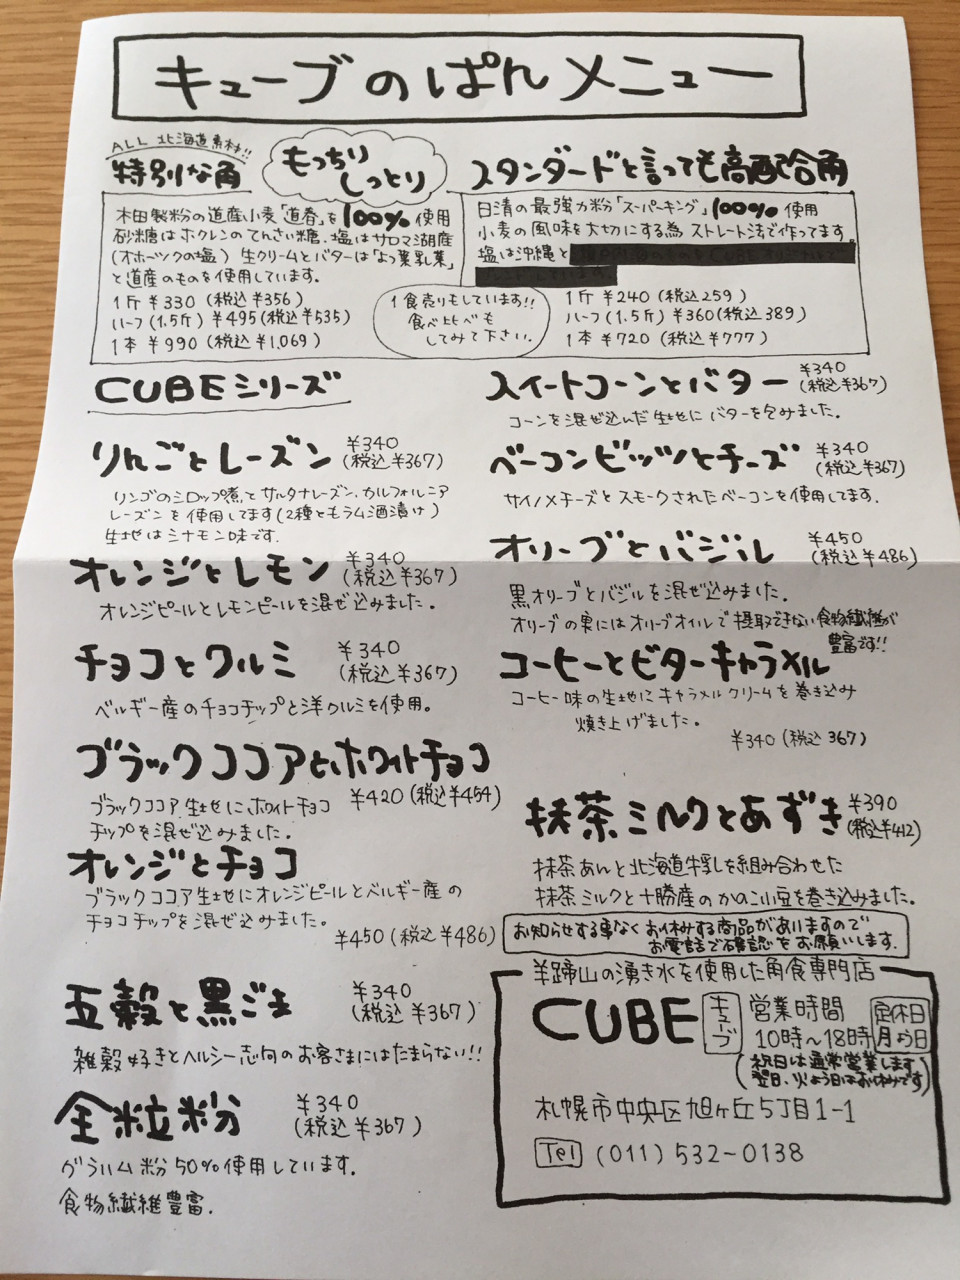 キューブのぱんメニュー
ALL 北海道素材!!
特別な角
もっちり
しっとり
木田製粉の道産小麦「道春」を100%使用
砂糖はホクレンのてんさい糖.塩はサロマ湖産
(オホーツクの塩) 生クリームとバターは「よつ葉乳業」
と道産のものを使用しています.
1斤 ¥330 (税込 ¥356)
ハーフ (1.5斤) ¥495 (税込 ¥535)
1本 ¥990 (税込 ¥1,069)
スタンダードと言っても高配合角
日清の最強力粉「スーパーキング」100% 使用
小麦の風味を大切にする為 ストレート法で作ってます。
塩は沖縄と
1斤 ¥240 (税込 259)
ハーフ (1.5斤) ¥360 (税込 389)
1本 ¥720 (税込 ¥777)
1食売りもしています!!
食べ比べも
してみて下さい.
CUBEシリーズ
りんごとレーズン ¥340
(税込 ¥367)
リンゴのシロップ煮と サルタナレーズン.カルフォルニア
レーズンを使用してます(2種ともラム酒漬け)
生地はシナモン味です.
オレンジとレモン ¥340
(税込 ¥367)
オレンジピールとレモンピールを混ぜ込みました.
チョコとクルミ ¥340
(税込 ¥367)
ベルギー産のチョコチップと洋クルミを使用。
ブラックココアとホワイトチョコ
¥420 (税込 ¥454)
ブラックココア生地にホワイトチョコ
チップを混ぜ込みました。
オレンジとチョコ
ブラックココア生地にオレンジピールとベルギー産の
チョコチップを混ぜ込みました。
¥450 (税込 ¥486)
五穀と黒ごま ¥340
(税込 ¥367)
雑穀好きとヘルシー志向のお客さまにはたまらない!!
全粒粉 ¥340
(税込 ¥367)
グラハム粉50%使用しています.
食物繊維豊富.
スイートコーンとバター ¥340
(税込 ¥367)
コーンを混ぜ込んだ生地にバターを包みました。
ベーコンビッツとチーズ ¥340
(税込 ¥367)
サイノメチーズとスモークされたベーコンを使用してます.
オリーブとバジル ¥450
(税込 ¥486)
黒オリーブとバジルを混ぜ込みました。
オリーブの実にはオリーブオイルで摂取できない食物繊維が
豊富です!!
コーヒーとビターキャラメル
コーヒー味の生地にキャラメルクリームを巻き込み
焼き上げました。
¥340 (税込 367)
抹茶ミルクとあずき ¥390
(税込 ¥412)
抹茶あんと北海道牛乳を組み合わせた
抹茶ミルクと十勝産のかのこ小豆を巻き込みました。
お知らせする事なく お休みする商品がありますので
お電話で確認をお願いします.
羊蹄山の湧き水を使用した角食専門店
CUBE キューブ
営業時間
10時〜18時
定休日
月よう日
(祝日は通常営業します
翌日、火よう日はお休みです)
札幌市中央区旭ヶ丘5丁目1-1
Tel (011) 532-0138